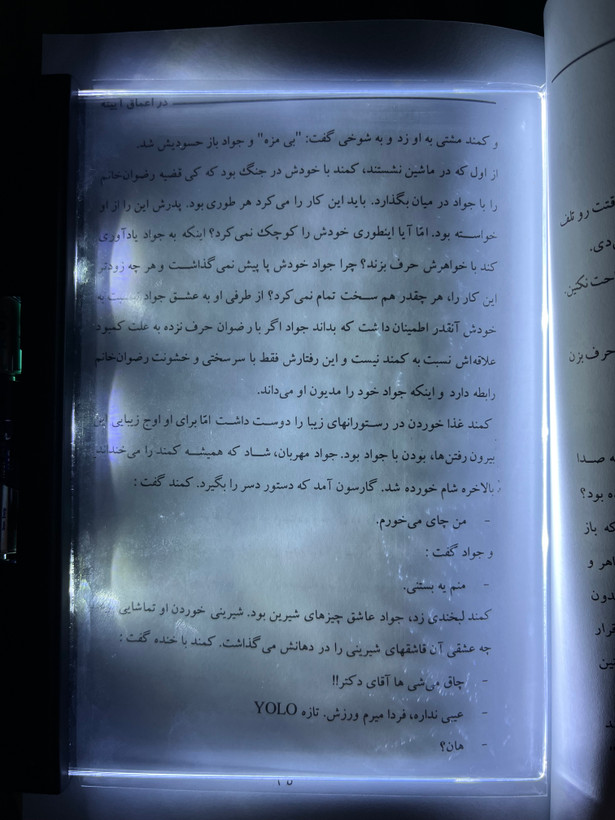 در اعماق آیینه
و کمند مشتی به او زد و به شوخی گفت: "بی مزه" و جواد باز حسودیش شد.
از اول که در ماشین نشستند، کمند با خودش در جنگ بود که کی قضیه رضوان‌خانم
را با جواد در میان بگذارد. باید این کار را می‌کرد هر طوری بود. پدرش این را از او
خواسته بود. امّا آیا اینطوری خودش را کوچک نمی‌کرد؟ اینکه به جواد یادآوری
کند با خواهرش حرف بزند؟ چرا جواد خودش پا پیش نمی‌گذاشت و هر چه زودتر
این کار را، هر چقدر هم سخت تمام نمی‌کرد؟ از طرفی او به عشق جواد نسبت به
خودش آنقدر اطمینان داشت که بداند جواد اگر با رضوان حرف نزده به علت کمبود
علاقه‌اش نسبت به کمند نیست و این رفتارش فقط با سرسختی و خشونت رضوان‌خانم
رابطه دارد و اینکه جواد خود را مدیون او می‌داند.
کمند غذا خوردن در رستورانهای زیبا را دوست داشت امّا برای او اوج زیبایی این
بیرون رفتن‌ها، بودن با جواد بود. جواد مهربان، شاد که همیشه کمند را می‌خنداند.
بالاخره شام خورده شد. گارسون آمد که دستور دسر را بگیرد. کمند گفت :
- من چای می‌خورم.
و جواد گفت :
- منم یه بستنی.
کمند لبخندی زد، جواد عاشق چیزهای شیرین بود. شیرینی خوردن او تماشایی
چه عشقی آن قاشقهای شیرینی را در دهانش می‌گذاشت. کمند با خنده گفت :
- چاق می‌شی ها آقای دکتر!!
- عیبی نداره، فردا میرم ورزش. تازه YOLO
- هان؟
قتت رو تلف
‌دی.
حت نکین.
حرف بزن
ه صدا
ه بود؟
که باز
اهر و
دون
قرار
ین